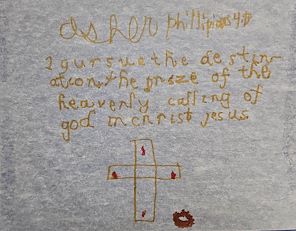 asher phillipians 4:
I pursue the destin-
ation, the prize of the
heavenly calling of
god in christ jesus